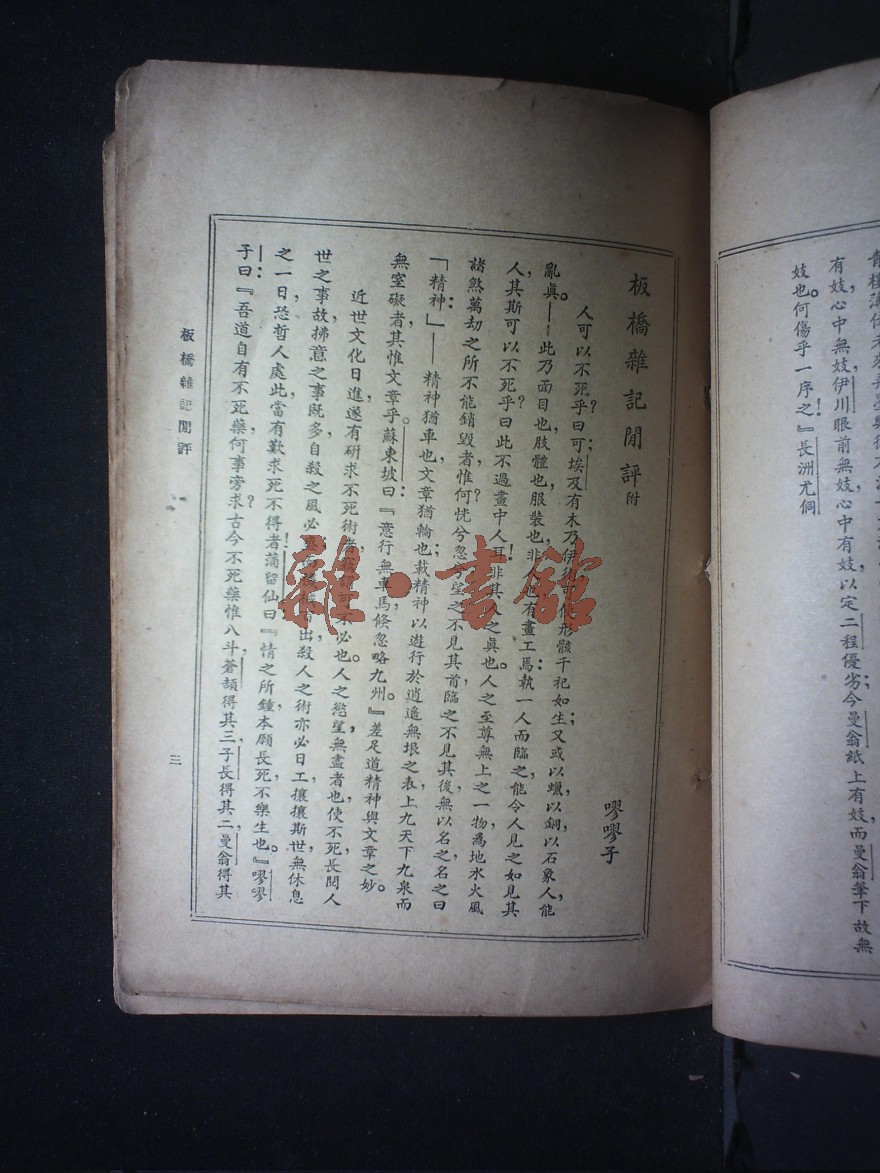 有妓心中無妓伊川眼前無妓心中有妓以定二程優劣今曼翁紙上有妓而曼翁筆下故無
妓也何傷乎一序之！』長洲尤侗
板橋雜記閒評附
嘐嘐子
人可以不死乎？曰可；埃及有木乃伊後可使形骸千祀如生；又或以蠟，以銅，以石象人，能
亂眞。——此乃面目也，肢體也，服裝也，非人也有畫工焉：執一人而臨之，能令人見之如見其
人，其斯可以不死乎？曰此不過畫中人耳！非其人之眞也。人之至尊無上之一物，爲地水火風
諸煞萬劫之所不能銷毀者，惟何？恍兮忽兮，望之不見其首，臨之不見其後，無以名之，名之曰
「精神」：——精神猶車也，文章猶輪也；載精神以遊行於逍遙無垠之表，上九天，下九泉，而
無窒礙者，其惟文章乎。蘇東坡曰：『意行無車馬，倏忽略九州。』差足道精神與文章之妙。
近世文化日進，遂有研求不死術者，可不必也。人之慾望無盡者也，使不死，長閱人
世之事，故拂意之事既多，自殺之風必出殺人之術亦必日工，攘攘斯世，無休息
之一日，恐哲人處此，當有歎求死不得者！蒲留仙曰：『情之所鍾，本願長死，不樂生也。』嘐嘐
子曰：『吾道自有不死藥，何事旁求？古今不死藥惟八斗，蒼頡得其三，子長得其二，曼翁得其
板橋雜記閒評
三
雜·書館